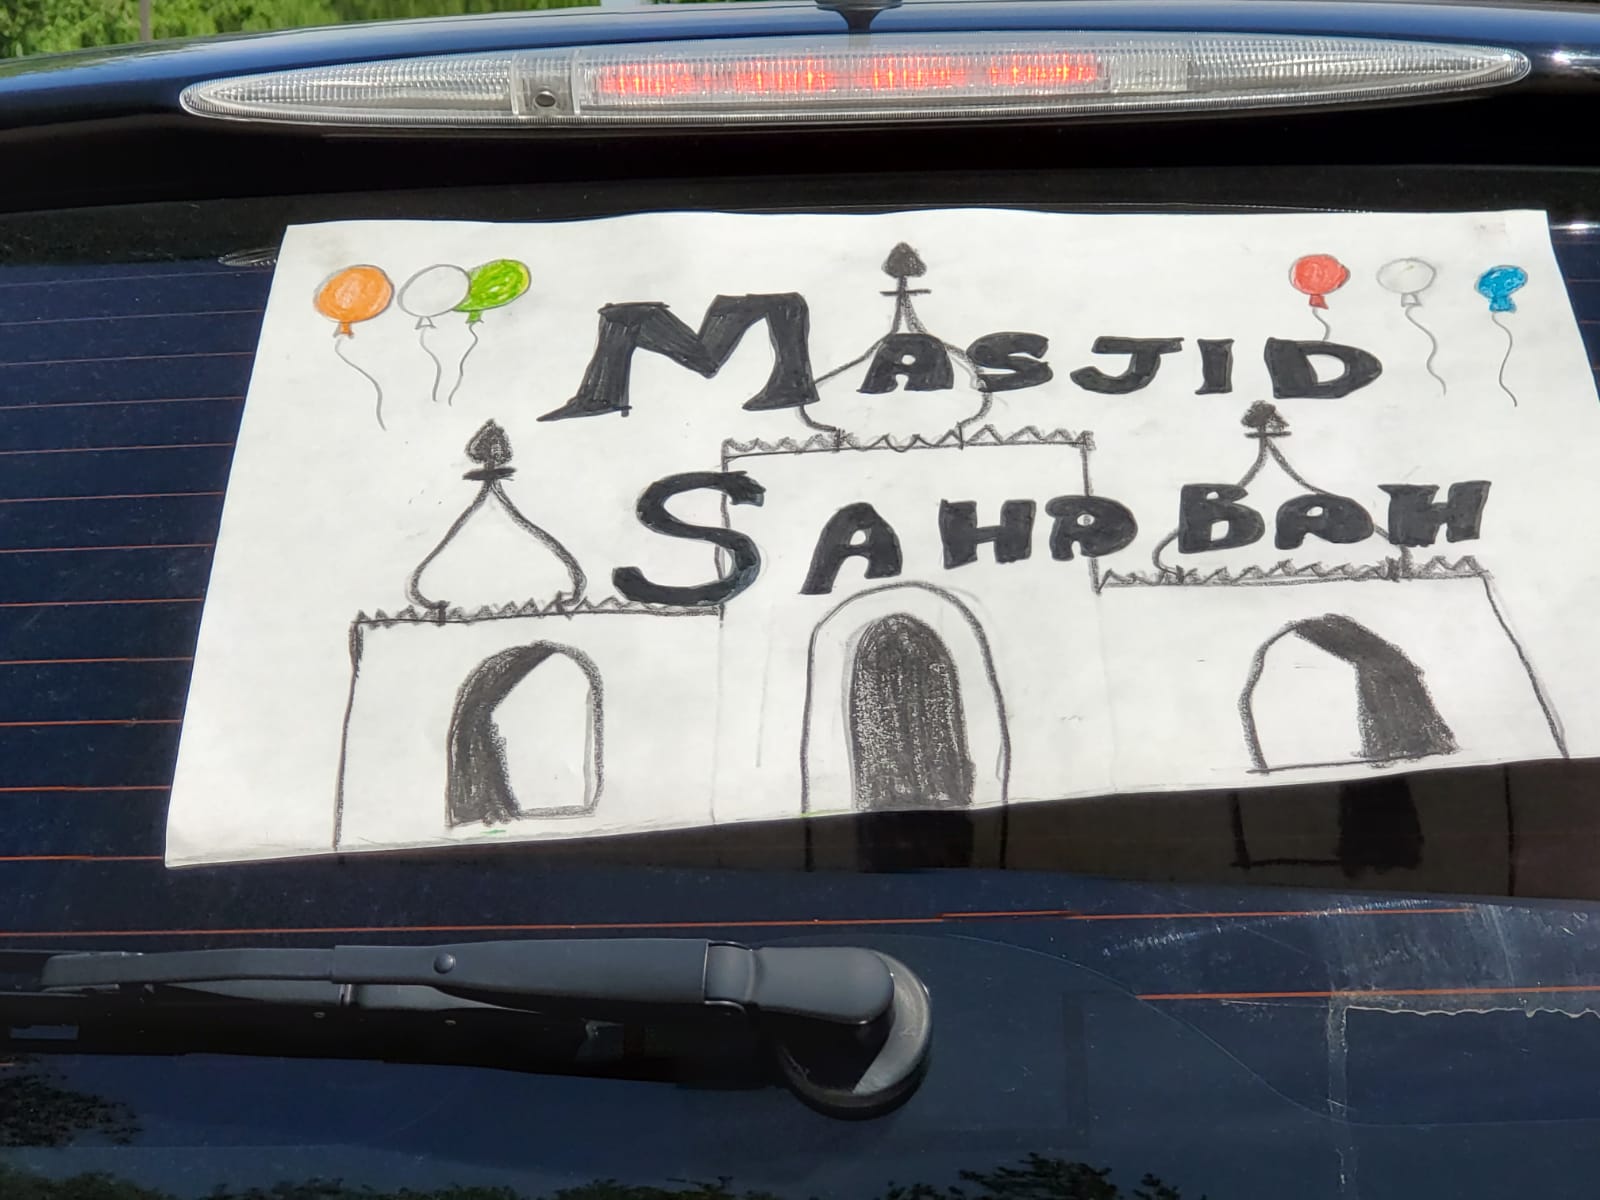 MASJID
SAHABAH